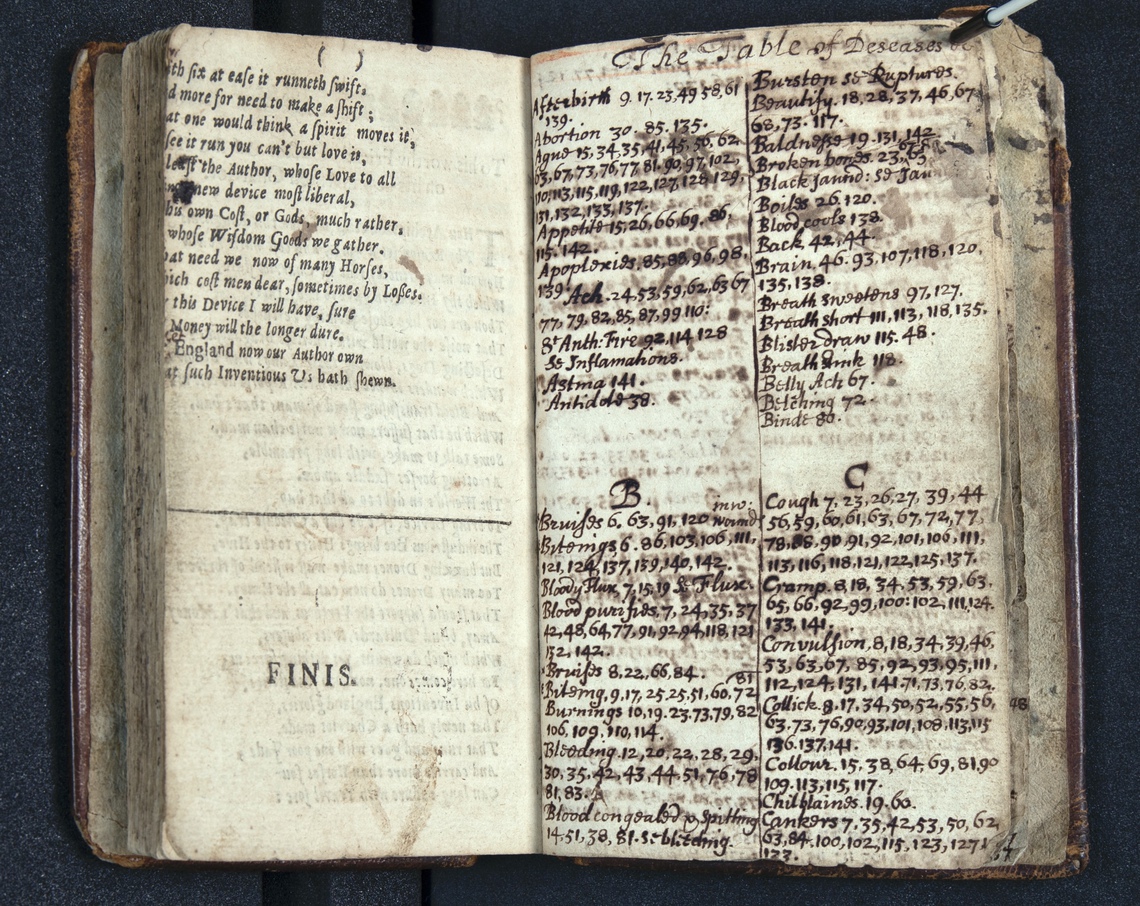 ( )
ith ſix at eaſe it runneth ſwift,
d more for need to make a ſhift ;
at one would think a ſpirit moves it,
ſee it run you can't but love it,
leaſt the Author, whoſe Love to all
new device moſt liberal,
his own Coſt, or Gods, much rather,
whoſe Wiſdom Goods we gather.
hat need we now of many Horſes,
hich coſt men dear, ſometimes by Loſſes.
this Device I will have, ſure
Money will the longer dure.
England now our Author own
at ſuch Inventious Us hath ſhewn.
FINIS.
The Table of Deseases
Afterbirth 9. 17. 23, 49 58, 61
139.
Abortion 30. 85. 135.
Ague 15, 34, 35, 41, 45, 56, 62,
63, 67, 73, 76, 77 81. 90, 97, 102,
110, 113, 115, 119, 122, 127, 128 129,
131, 132, 133, 137.
Appetite 15, 26, 66, 69, 86,
115. 142.
Apoplexies. 85, 88, 96, 98,
139. Ach. 24, 53, 59, 62, 63 67
77, 79, 82, 85, 87, 99 110:
St Anth: Fire 92, 114 128
Se Inflamations.
Astma 141.
Antidote 38.
B
Bruises 6. 63, 91, 120 inw: wound
Biteings, 6. 86, 103, 106, 111,
121, 124, 137, 139, 140, 142.
Bloody Flux, 7, 15, 19 Se Flux.
Blood purifies, 7, 24, 35, 37
42, 48, 64, 77, 91, 92, 94, 118, 121
132, 142.
Bruises 8, 22, 66, 84. 81
Biteing, 9, 17, 25 25, 51, 60, 72
Burnings 10, 19. 23, 73, 79, 82
106, 109, 110, 114.
Bleeding. 12, 20, 22, 28, 29,
30, 35, 42, 43, 44, 51, 76, 78
81, 83.
Blood congealed & spitting
14, 51, 38, 81. se bleeding.
Bursten se Ruptures.
Beautify. 18, 28, 37, 46, 67
68, 73. 117.
Baldnesse 19. 131, 142.
Broken bones. 23,
Black Jaund: se Jau
Boiles 26. 120.
Blood cools 138.
Back 42, 44.
Brain, 46. 93, 107, 118, 120,
135, 138.
Breath sweetens 97, 127.
Breath short 111, 113, 118, 135.
Blister draw 115. 48.
Breath stink 118.
Belly Ach 67.
Belching 72.
Binde 80.
C
Cough 7, 23, 26, 27, 39, 44
56, 59, 60, 61, 63, 67, 72, 77,
78, 88, 90, 91, 92, 101, 106, 111,
113, 116, 118, 121, 122, 125, 137.
Cramp. 8, 18, 34, 53, 59, 63,
65, 66, 92, 99, 100: 102, 111, 124.
133, 141.
Convulsion, 8, 18, 34, 39, 46,
53, 63, 67, 85, 92, 93, 95, 111,
112, 124, 131, 141. 71, 73, 76, 82.
Collick. 8, 17, 34, 50, 52, 55, 56, 48
63, 73, 76, 90, 93, 101, 108, 113, 115
136. 137, 141.
Collour. 15, 38, 64, 69, 81, 90
109. 113, 115, 117.
Chilblaines. 19. 60.
Cankers 7. 35, 42, 53, 50, 62,
63, 84, 100, 102, 115, 123, 127
123.